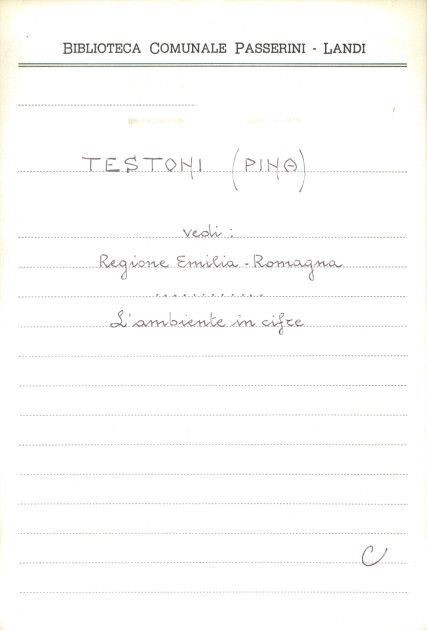 BIBLIOTECA COMUNALE PASSERINI - LANDI
TESTONI (PINA)
vedi :
Regione Emilia - Romagna
............
L'ambiente in cifre
C